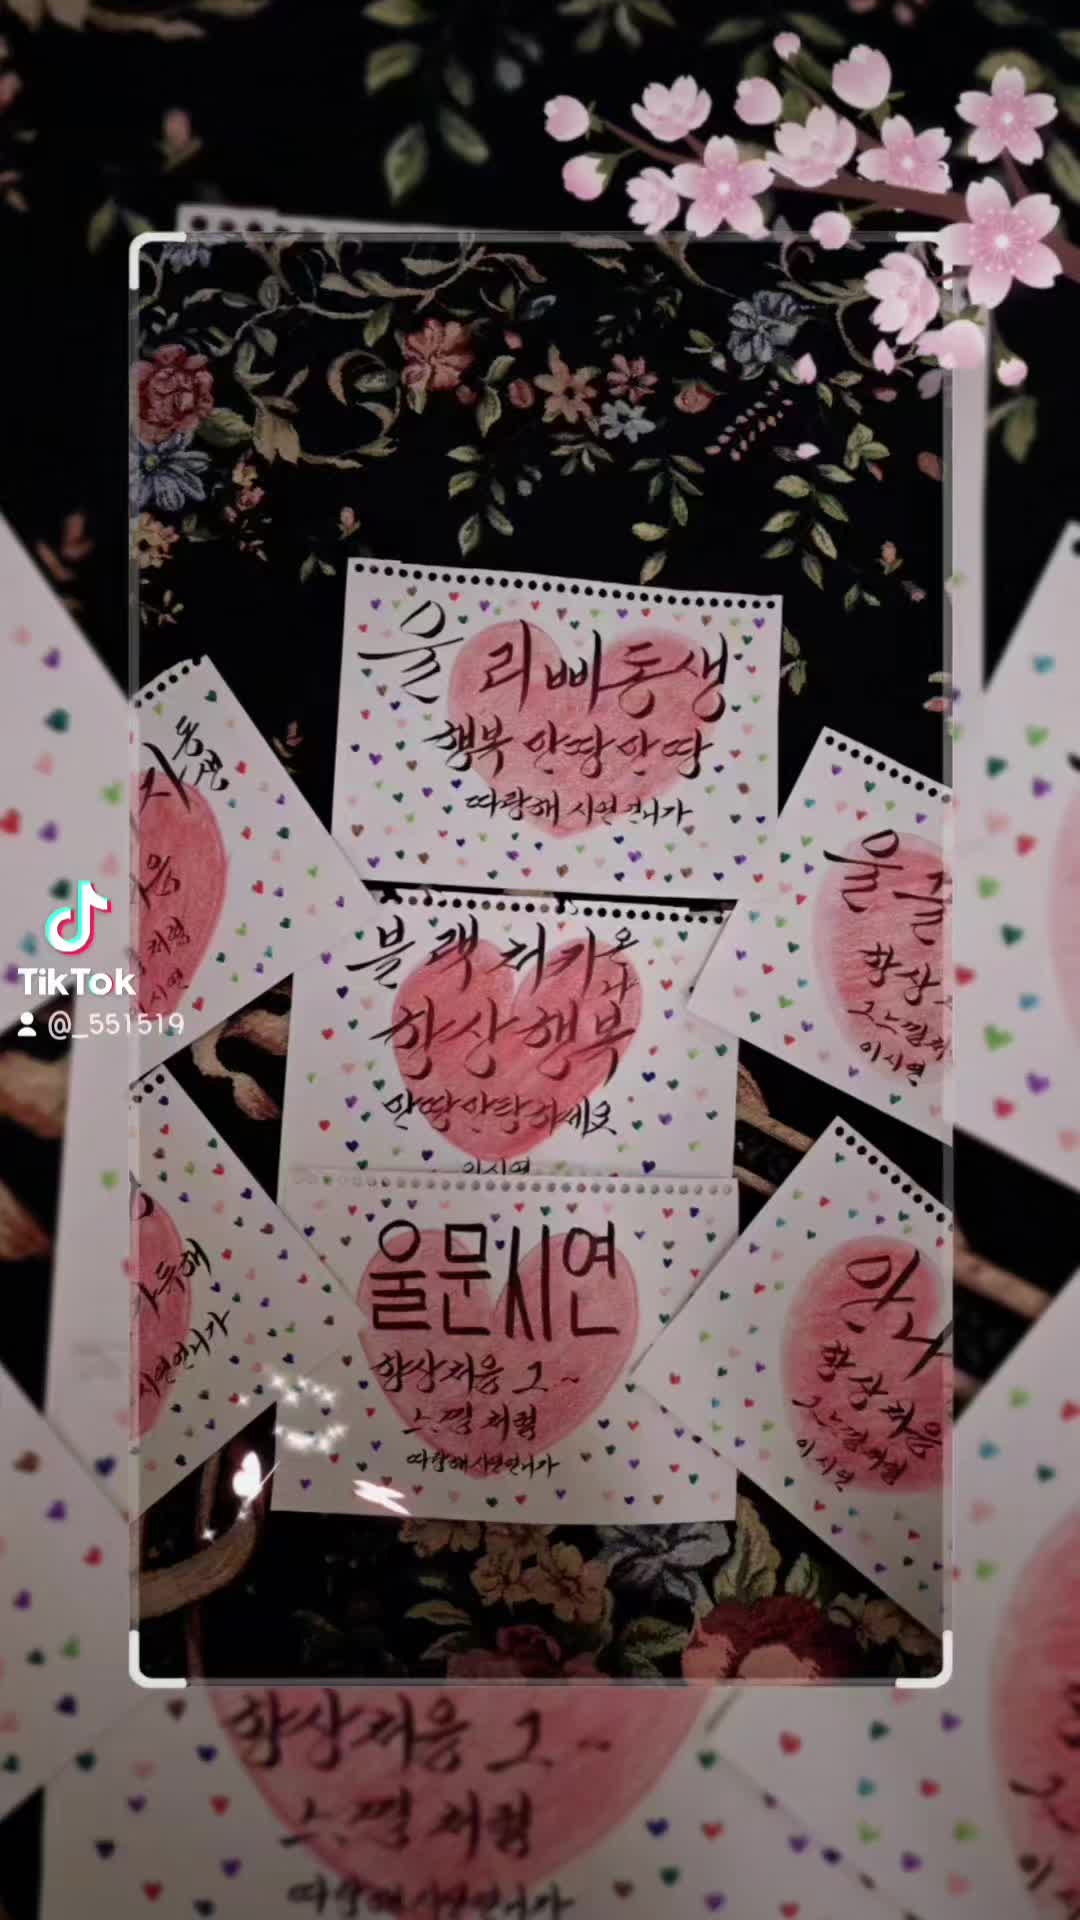 울 리삐동생
행복 안땅안땅
따랑해 시연언니가
동생
처럼
이시연
블랙처키오
항상행복
안땅안탕하세요
이시연
울
항상
그느낌처
이시연
TikTok
@_551519
울문시연
항상처음 그~
느낌처럼
따랑해시연언니가
가득해
시연언니가
항상처음
그느낌처럼
이시연
항상처음 그~
느낌처럼
따랑해시연언니가